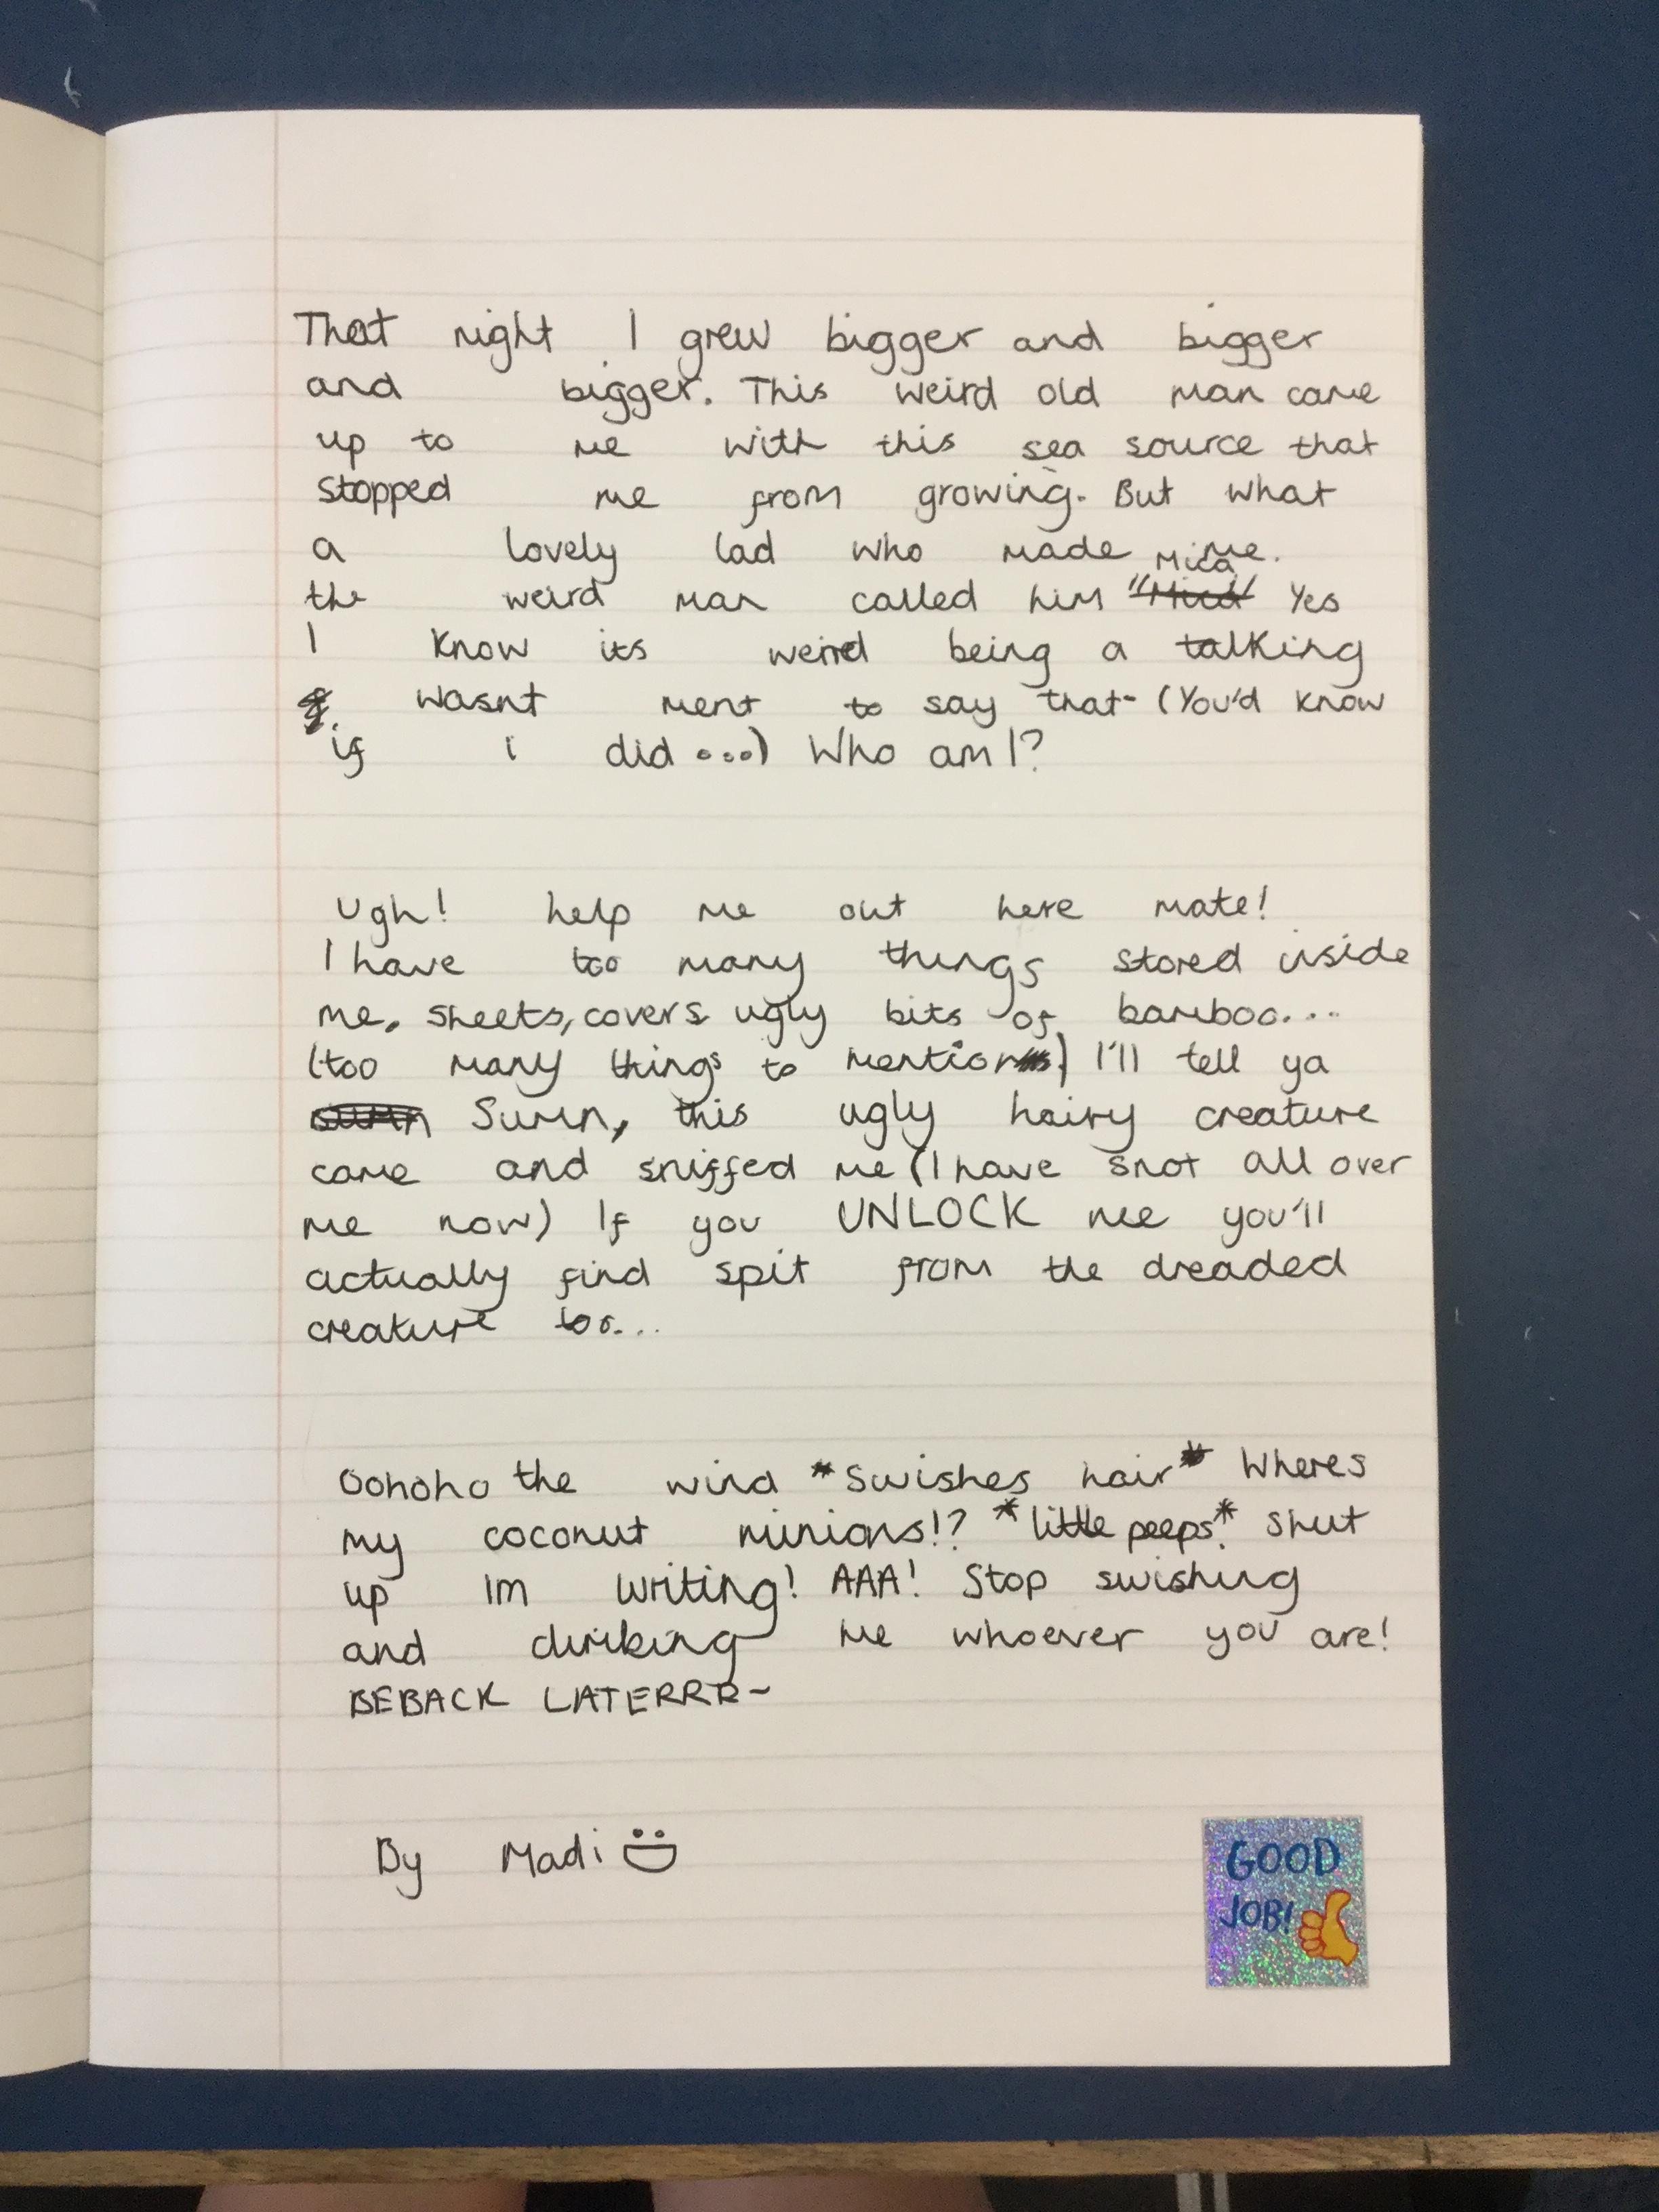 That night I grew bigger and bigger
and bigger. This weird old man came
up to me with this sea source that
stopped me from growing. But what
a lovely lad who made me.
the weird man called him "Mica" Yes
I know its weird being a talking
wasnt ment to say that- (You'd know
if i did ...) Who am I?
Ugh! help me out here mate!
I have too many things stored inside
me. sheets, covers ugly bits of bamboo...
(too many things to mention.) I'll tell ya
Sumn, this ugly hairy creature
came and sniffed me (I have snot all over
me now) If you UNLOCK me you'll
actually find spit from the dreaded
creature too...
Oohoho the wind *Swishes hair* Wheres
my coconut minions!? *little peeps* Shut
up Im writing! AAA! Stop swishing
and climbing me whoever you are!
BEBACK LATERRR-
By Madi
GOOD
JOB!